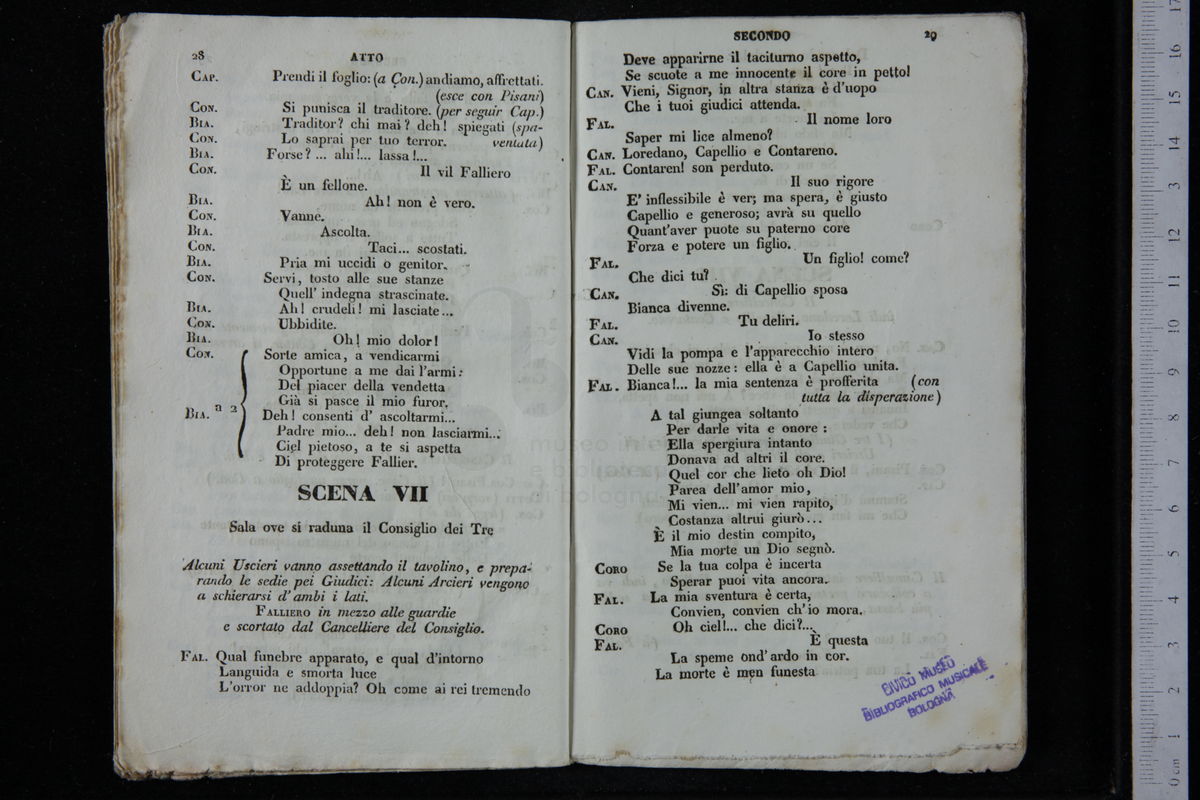 28 ATTO
CAP. Prendi il foglio: (a Con.) andiamo, affrettati.
(esce con Pisani)
CON. Si punisca il traditore. (per seguir Cap.)
BIA. Traditor? chi mai? deh! spiegati (spa-
CON. Lo saprai per tuo terror. ventata)
BIA. Forse? ... ahi!... lassa!...
CON. Il vil Falliero
È un fellone.
BIA. Ah! non è vero.
CON. Vanne.
BIA. Ascolta.
CON. Taci... scostati.
BIA. Pria mi uccidi o genitor.
CON. Servi, tosto alle sue stanze
Quell' indegna strascinate.
BIA. Ah! crudeli! mi lasciate...
CON. Ubbidite.
BIA. Oh! mio dolor!
CON. Sorte amica, a vendicarmi
Opportune a me dai l'armi:
Del piacer della vendetta
Già si pasce il mio furor.
BIA. a 2 Deh! consenti d' ascoltarmi...
Padre mio... deh! non lasciarmi...
Ciel pietoso, a te si aspetta
Di proteggere Fallier.
SCENA VII
Sala ove si raduna il Consiglio dei Tre
Alcuni Uscieri vanno assettando il tavolino, e prepa-
rando le sedie pei Giudici: Alcuni Arcieri vengono
a schierarsi d'ambi i lati.
FALLIERO in mezzo alle guardie
e scortato dal Cancelliere del Consiglio.
FAL. Qual funebre apparato, e qual d'intorno
Languida e smorta luce
L'orror ne addoppia? Oh come ai rei tremendo
SECONDO 29
Deve apparirne il taciturno aspetto,
Se scuote a me innocente il core in petto!
CAN. Vieni, Signor, in altra stanza è d'uopo
Che i tuoi giudici attenda.
FAL. Il nome loro
Saper mi lice almeno?
CAN. Loredano, Capellio e Contareno.
FAL. Contaren! son perduto.
CAN. Il suo rigore
E' inflessibile è ver; ma spera, è giusto
Capellio e generoso; avrà su quello
Quant'aver puote su paterno core
Forza e potere un figlio.
FAL. Un figlio! come?
Che dici tu?
CAN. Sì: di Capellio sposa
Bianca divenne.
FAL. Tu deliri.
CAN. Io stesso
Vidi la pompa e l'apparecchio intero
Delle sue nozze: ella è a Capellio unita.
FAL. Bianca!... la mia sentenza è profferita (con
tutta la disperazione)
A tal giungea soltanto
Per darle vita e onore:
Ella spergiura intanto
Donava ad altri il core.
Quel cor che lieto oh Dio!
Parea dell'amor mio,
Mi vien... mi vien rapito,
Costanza altrui giurò...
È il mio destin compito,
Mia morte un Dio segnò.
CORO Se la tua colpa è incerta
Sperar puoi vita ancora.
FAL. La mia sventura è certa,
Convien, convien ch'io mora.
CORO Oh ciel!... che dici?...
FAL. È questa
La speme ond'ardo in cor.
La morte è men funesta
CIVICO MUSEO
BIBLIOGRAFICO MUSICALE
BOLOGNA